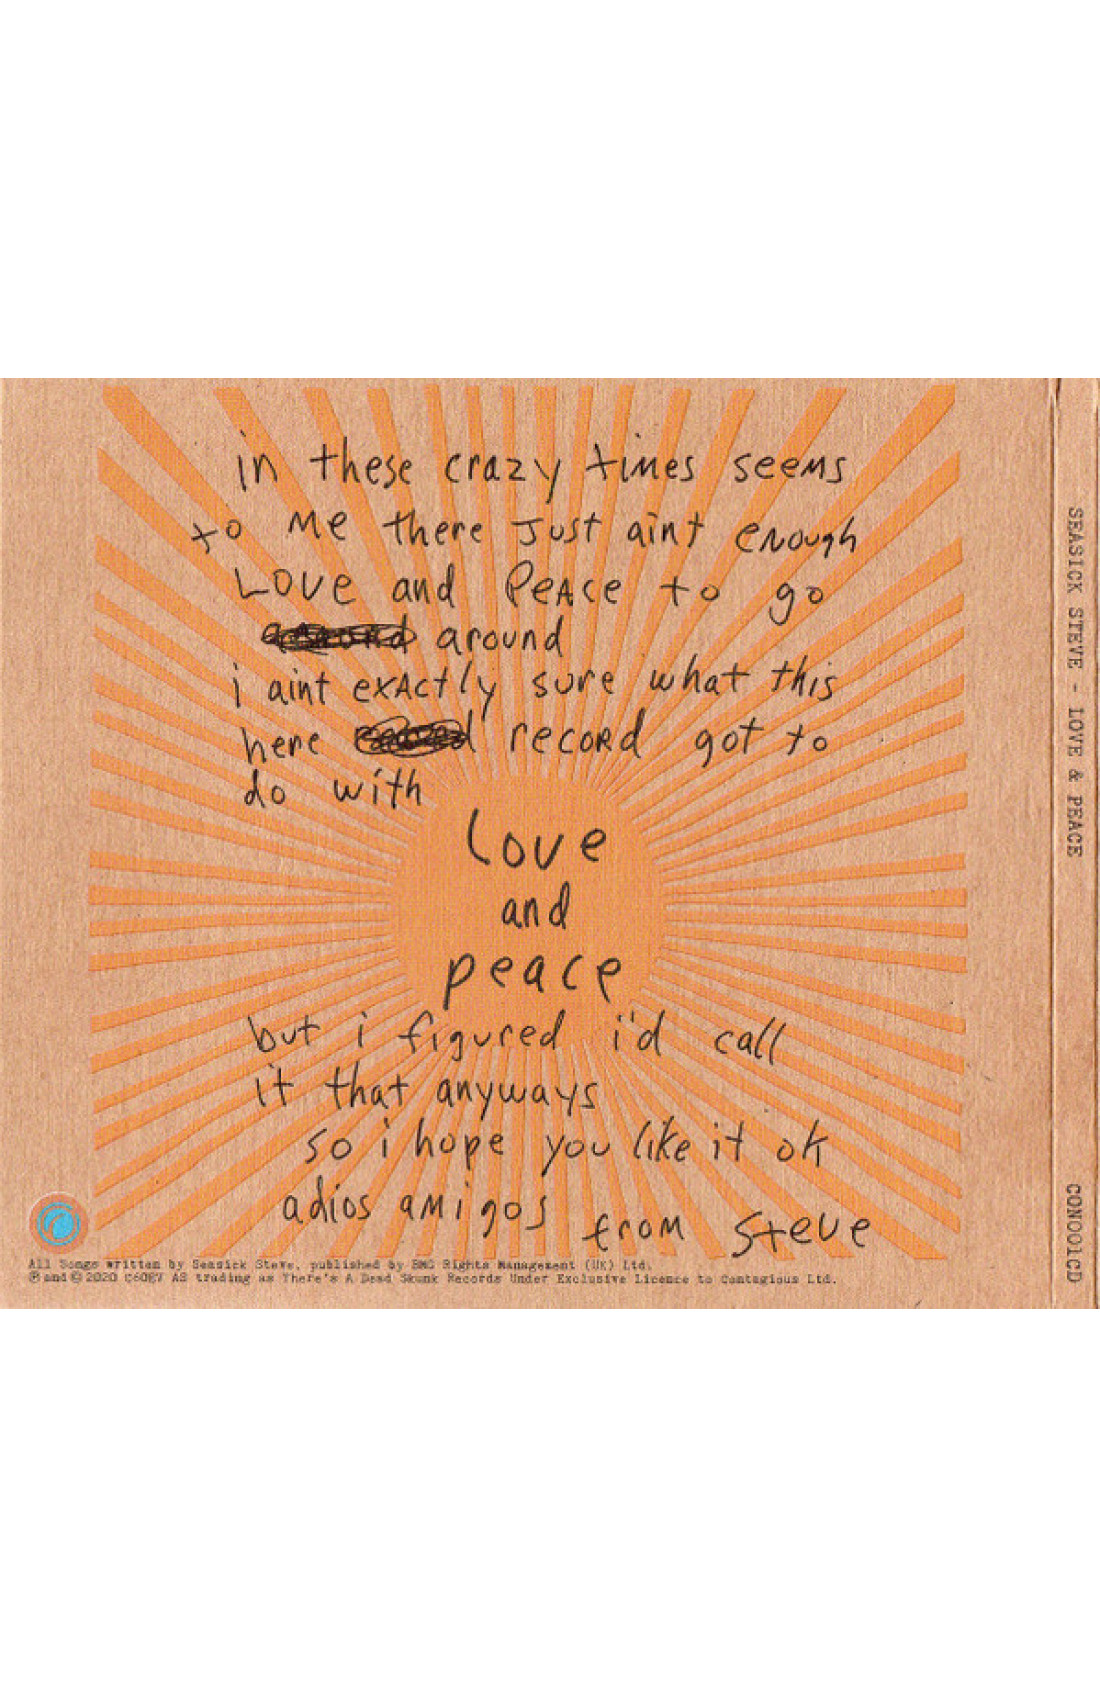 in these crazy times seems
to me there just aint enough
Love and Peace to go
around
i aint exactly sure what this
here record got to
do with
Love
and
peace
but i figured i'd call
it that anyways
so i hope you like it ok
adios amigos from Steve
All Songs written by Seasick Steve, published by BMG Rights Management (UK) Ltd.
℗ and © 2020 AS trading as There's A Dead Skunk Records Under Exclusive Licence to Contagious Ltd.
SEASICK STEVE - LOVE & PEACE
CON001CD